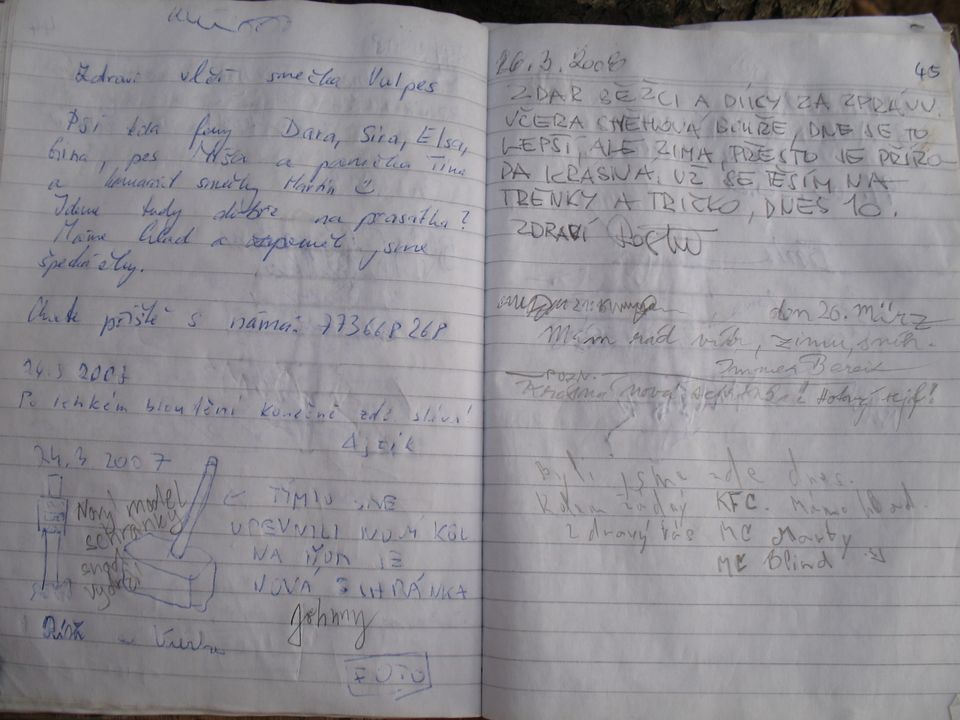 Zdraví vlčí smečka Vulpes
Psí Dara, Sira, Elsa,
pes a panička Tina
a kamarád smečky Martin
Jdeme tudy dobře na prasátka?
Máme hlad a zapomněli jsme
špekáčky.
Chcete příště s námi: 773668268
24.3 2007
Po lehkém bloudění konečně zde slávi!
Ajzík
24.3 2007
Nový model
schránky
snad
vydrží
← TÍMTO JSME
UPEVNILI NOVÝ KŮL
NA NĚM JE
NOVÁ SCHRÁNKA
Johnny
FOTO
45
26.3.2008
ZDAR BĚŽCI A DÍKY ZA ZPRÁVU.
VČERA SNĚHOVÁ BOUŘE, DNE SE TO
LEPŠÍ, ALE ZIMA, PŘESTO JE PŘÍRO
DA KRÁSNÁ. UŽ SE TĚŠÍM NA
TRENKY A TRIČKO, DNES 10.
ZDRAVÍ
den 26. März
Mám rád vítr, zimu, sníh.
POZN.
nová
Byli jsme zde dnes.
Kolem žádný KFC. Máme hlad.
Zdravý Vás MC Marty
MC Blind